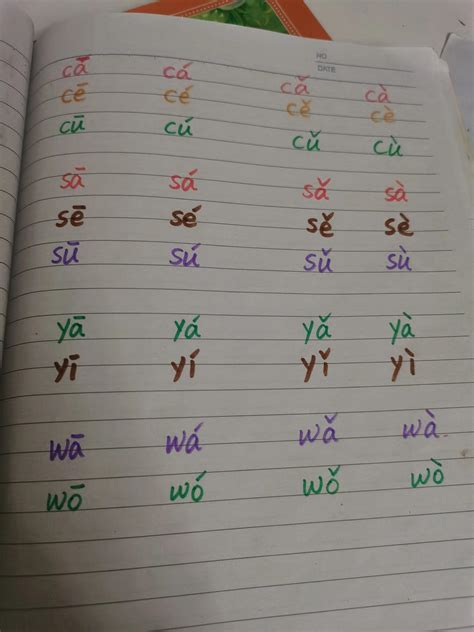 NO
DATE
cā cá cǎ cà
cē cé cě cè
cū cú cǔ cù
sā sá sǎ sà
sē sé sě sè
sū sú sǔ sù
yā yá yǎ yà
yī yí yǐ yì
wā wá wǎ wà
wō wó wǒ wò